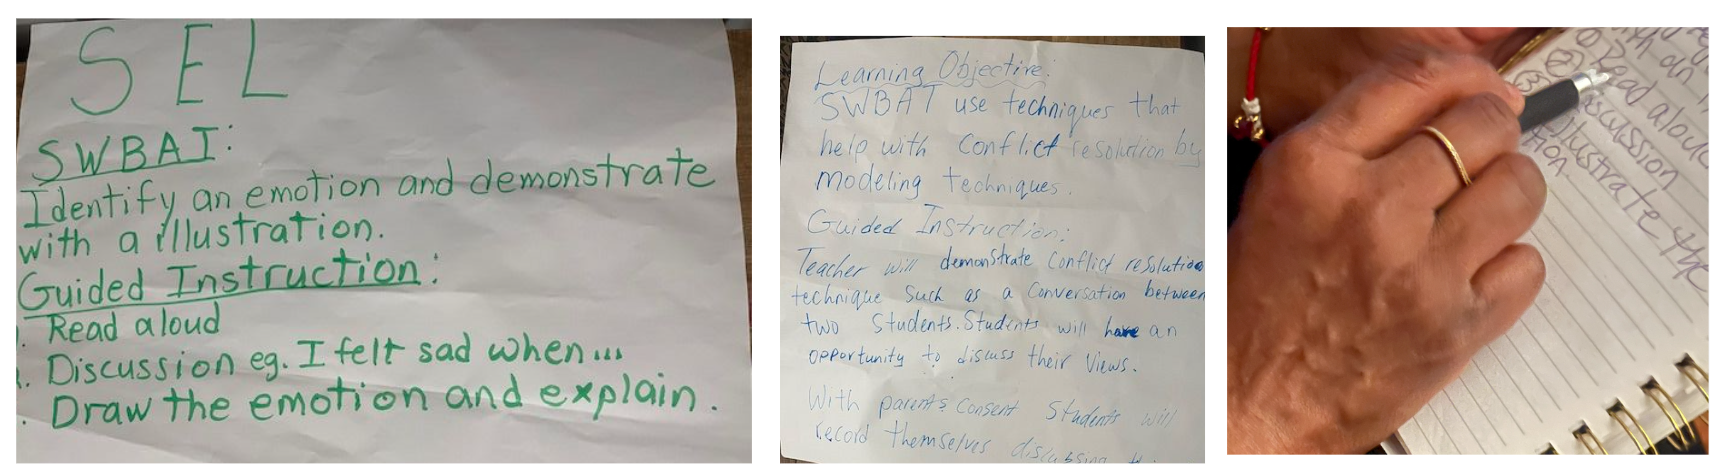 SEL
SWBAT:
Identify an emotion and demonstrate
with a illustration.
Guided Instruction:
Read aloud
Discussion eg. I felt sad when...
Draw the emotion and explain.
Learning Objective:
SWBAT use techniques that
help with conflict resolution by
modeling techniques.
Guided Instruction:
Teacher will demonstrate conflict resolution
technique such as a conversation between
two students. Students will have an
opportunity to discuss their views.
With parents consent students will
record themselves discussing
Read aloud
Illustrate the